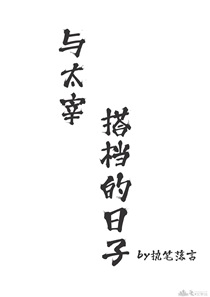 与太宰
搭档的日子
by执笔落言